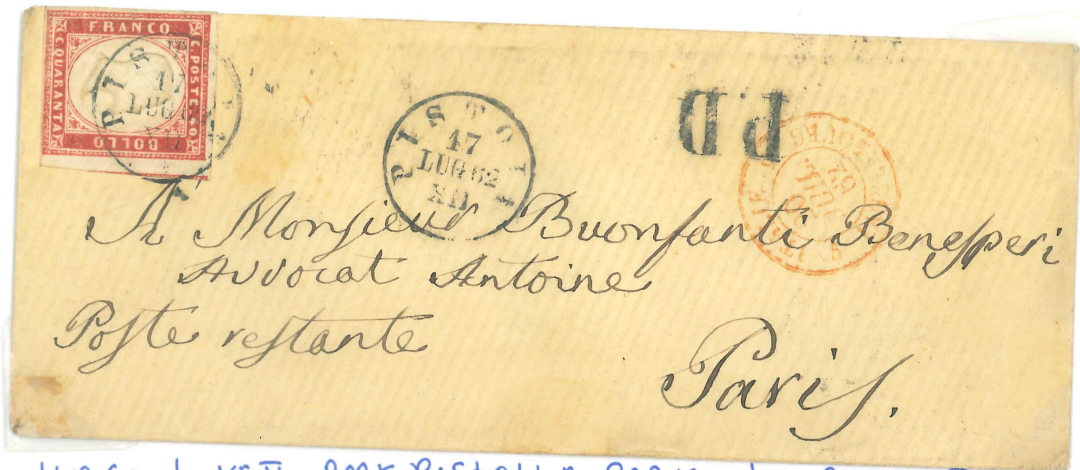 FRANCO
C. QUARANTA
C. POSTE 40
BOLLO
PISTOIA
17
LUG 62
XII
PISTOIA
17
LUG 62
XII
PD
A Monsieur Buonfanti Benesperi
Avvocat Antoine
Poste restante
Paris.